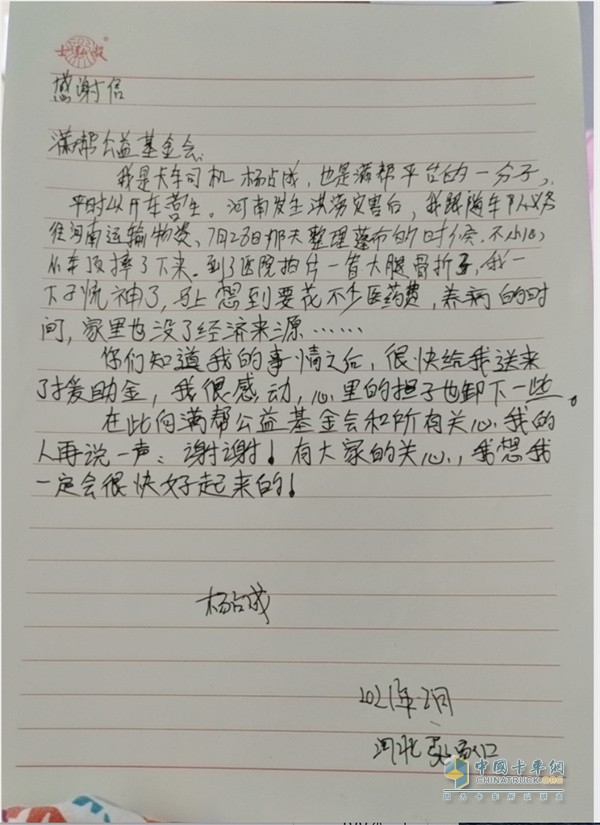 感谢信
满帮公益基金会
我是卡车司机杨占成,也是满帮平台的一分子,
平时以开车营生。河南发生洪涝灾害后,我跟随车队义务
往河南运输物资。7月23日那天整理蓬布的时候,不小心
从车顶摔了下来。到了医院拍片一看大腿骨折了,我一
下子慌神了,马上想到要花不少医药费,养病的时
间,家里也没了经济来源……
你们知道我的事情之后,很快给我送来
了援助金,我很感动,心里的担子也卸下一些。
在此向满帮公益基金会和所有关心我的
人再说一声:谢谢!有大家的关心,我想我
一定会很快好起来的!
杨占成
2021年 月
河北张家口
中国卡车网
CHINATRUCK.ORG